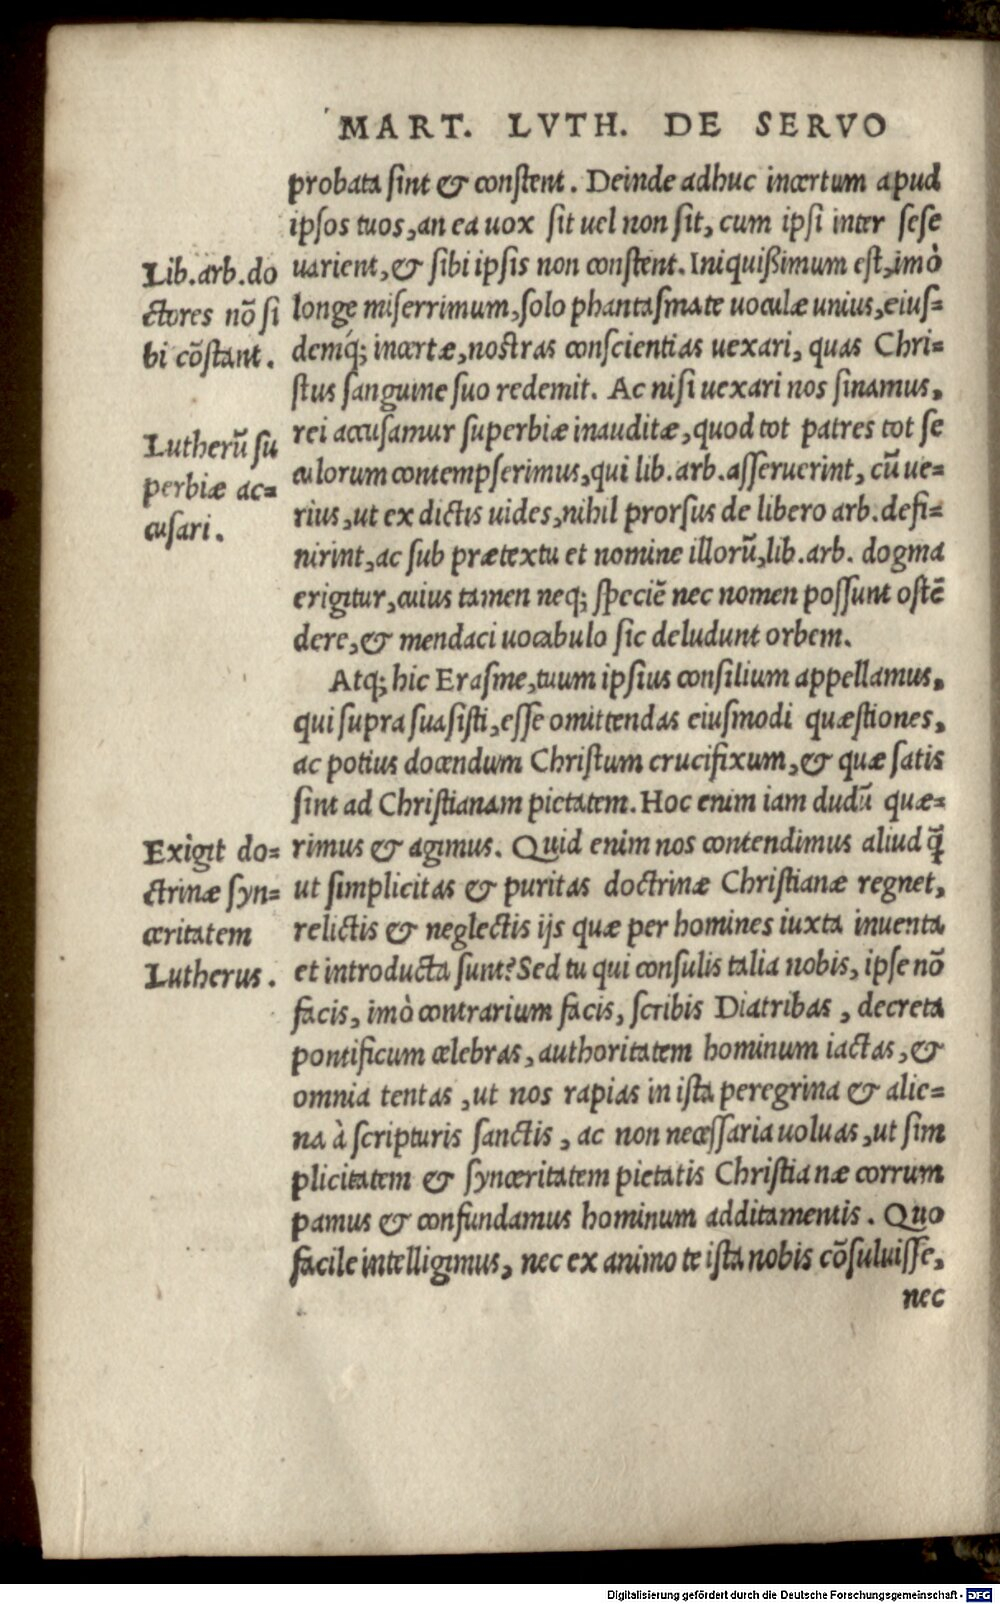 MART. LVTH. DE SERVO
probata sint & constent. Deinde adhuc incertum apud
ipsos tuos, an ea uox sit uel non sit, cum ipsi inter sese
uarient, & sibi ipsis non constent. Iniquißimum est, imò
longe miserrimum, solo phantasmate uoculæ unius, eius=
demq́; incertæ, nostras conscientias uexari, quas Chri=
stus sanguine suo redemit. Ac nisi uexari nos sinamus,
rei accusamur superbiæ inauditæ, quod tot patres tot se
culorum contempserimus, qui lib. arb. asseruerint, cũ ue=
rius, ut ex dictis uides, nihil prorsus de libero arb. defi=
nirint, ac sub prætextu et nomine illorũ, lib. arb. dogma
erigitur, cuius tamen neq; speciẽ nec nomen possunt ostẽ
dere, & mendaci uocabulo sic deludunt orbem.
Atq; hic Erasme, tuum ipsius consilium appellamus,
qui supra suasisti, esse omittendas eiusmodi quæstiones,
ac potius docendum Christum crucifixum, & quæ satis
sint ad Christianam pietatem. Hoc enim iam dudũ quæ=
rimus & agimus. Quid enim nos contendimus aliud q̃
ut simplicitas & puritas doctrinæ Christianæ regnet,
relictis & neglectis ijs quæ per homines iuxta inuenta
et introducta sunt? Sed tu qui consulis talia nobis, ipse nõ
facis, imò contrarium facis, scribis Diatribas, decreta
pontificum celebras, authoritatem hominum iactas, &
omnia tentas, ut nos rapias in ista peregrina & alie=
na à scripturis sanctis, ac non necessaria uoluas, ut sim
plicitatem & synceritatem pietatis Christianæ corrum
pamus & confundamus hominum additamentis. Quo
facile intelligimus, nec ex animo te ista nobis cõsuluisse,
nec
Lib. arb. do
ctores nõ si
bi cõstant.
Lutherũ su
perbiæ ac=
cusari.
Exigit do=
ctrinæ syn=
ceritatem
Lutherus.
Digitalisierung gefördert durch die Deutsche Forschungsgemeinschaft - DFG